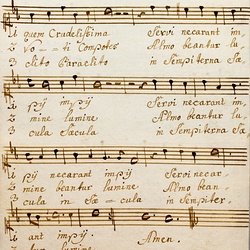 1 quem Crudelissima Servi necarant im
2 vo = ti Compotes Almo beantur lu
3 clito Paraclito in Sempiterna Sæ
1 pÿ impÿ Servi necarant im
2 mine lumine Almo beantur lu
3 cula Sæcula in Sempiterna sæ
1 pÿ necarant impÿ Servi necar
2 mine beantur lumine Almo bean
3 cula in Sæ = cula in Sempiter
1 ant impÿ Amen.